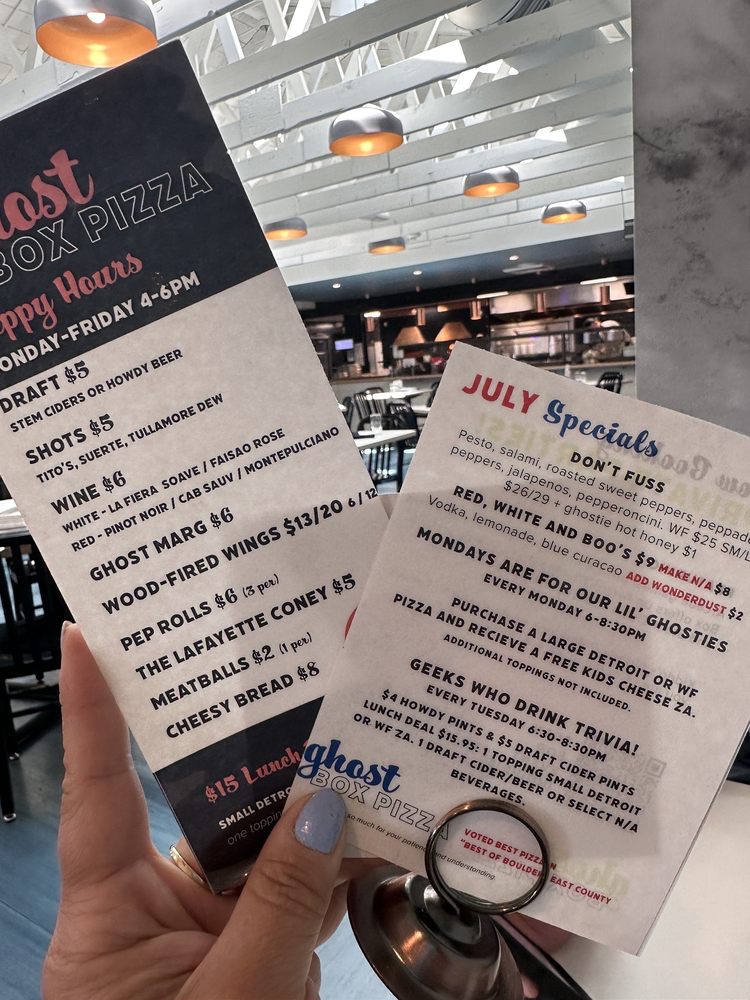 BOX PIZZA
Happy Hours
MONDAY-FRIDAY 4-6PM
DRAFT $5
STEM CIDERS OR HOWDY BEER
SHOTS $5
TITO'S, SUERTE, TULLAMORE DEW
WINE $6
WHITE - LA FIERA SOAVE / FAISAO ROSE
RED - PINOT NOIR / CAB SAUV / MONTEPULCIANO
GHOST MARG $6
WOOD-FIRED WINGS $13/20 6 / 12
PEP ROLLS $6 (3 per)
THE LAFAYETTE CONEY $5
MEATBALLS $2 (1 per)
CHEESY BREAD $8
$15 Lunch
SMALL DETRO
one toppin
JULY Specials
DON'T FUSS
Pesto, salami, roasted sweet peppers, peppade
peppers, jalapenos, pepperoncini. WF $25 SM/L
$26/29 + ghostie hot honey $1
RED, WHITE AND BOO'S $9 MAKE N/A $8
Vodka, lemonade, blue curacao ADD WONDERDUST $2
MONDAYS ARE FOR OUR LIL' GHOSTIES
EVERY MONDAY 6-8:30PM
PURCHASE A LARGE DETROIT OR WF
PIZZA AND RECIEVE A FREE KIDS CHEESE ZA.
ADDITIONAL TOPPINGS NOT INCLUDED.
GEEKS WHO DRINK TRIVIA!
EVERY TUESDAY 6:30-8:30PM
$4 HOWDY PINTS & $5 DRAFT CIDER PINTS
LUNCH DEAL $15.95: 1 TOPPING SMALL DETROIT
OR WF ZA. 1 DRAFT CIDER/BEER OR SELECT N/A
BEVERAGES.
ghost
BOX PIZZA
so much for your patience and understanding.
VOTED BEST PIZZA IN
"BEST OF BOULDER" EAST COUNTY